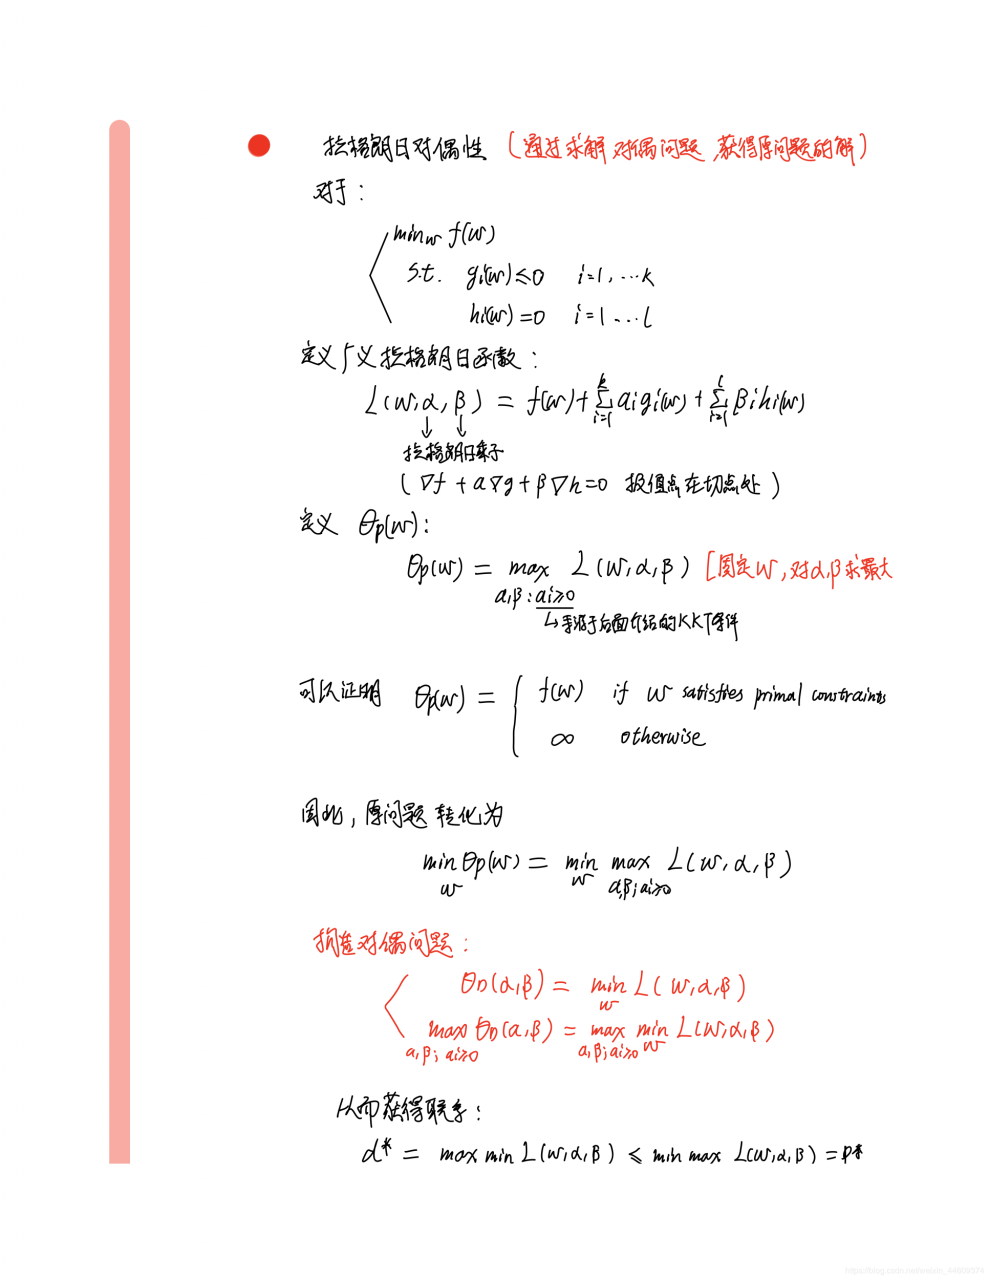 拉格朗日对偶性 (通过求解对偶问题,获得原问题的解)
对于:
min_w f(w)
s.t. gi(w)≤0 i=1,...k
hi(w)=0 i=1...l
定义广义拉格朗日函数:
L(w,α,β) = f(w)+∑_{i=1}^{k} αigi(w) + ∑_{i=1}^{l} βihi(w)
↓ ↓
拉格朗日乘子
(∇f + α∇g + β∇h=0 极值点在切点处)
定义 θp(w):
θp(w) = max L(w,α,β) [固定w,对α,β求最大
α,β:αi≥0
↳ 来源于后面介绍的KKT条件
可以证明 θp(w) = { f(w) if w satisfies primal constraints
∞ otherwise
因此,原问题转化为
min θp(w) = min max L(w,α,β)
w w α,β;αi≥0
构造对偶问题:
θD(α,β) = min L(w,α,β)
w
max θD(α,β) = max min L(w,α,β)
α,β;αi≥0 α,β;αi≥0 w
从而获得联系:
d* = max min L(w,α,β) ≤ min max L(w,α,β) = p*